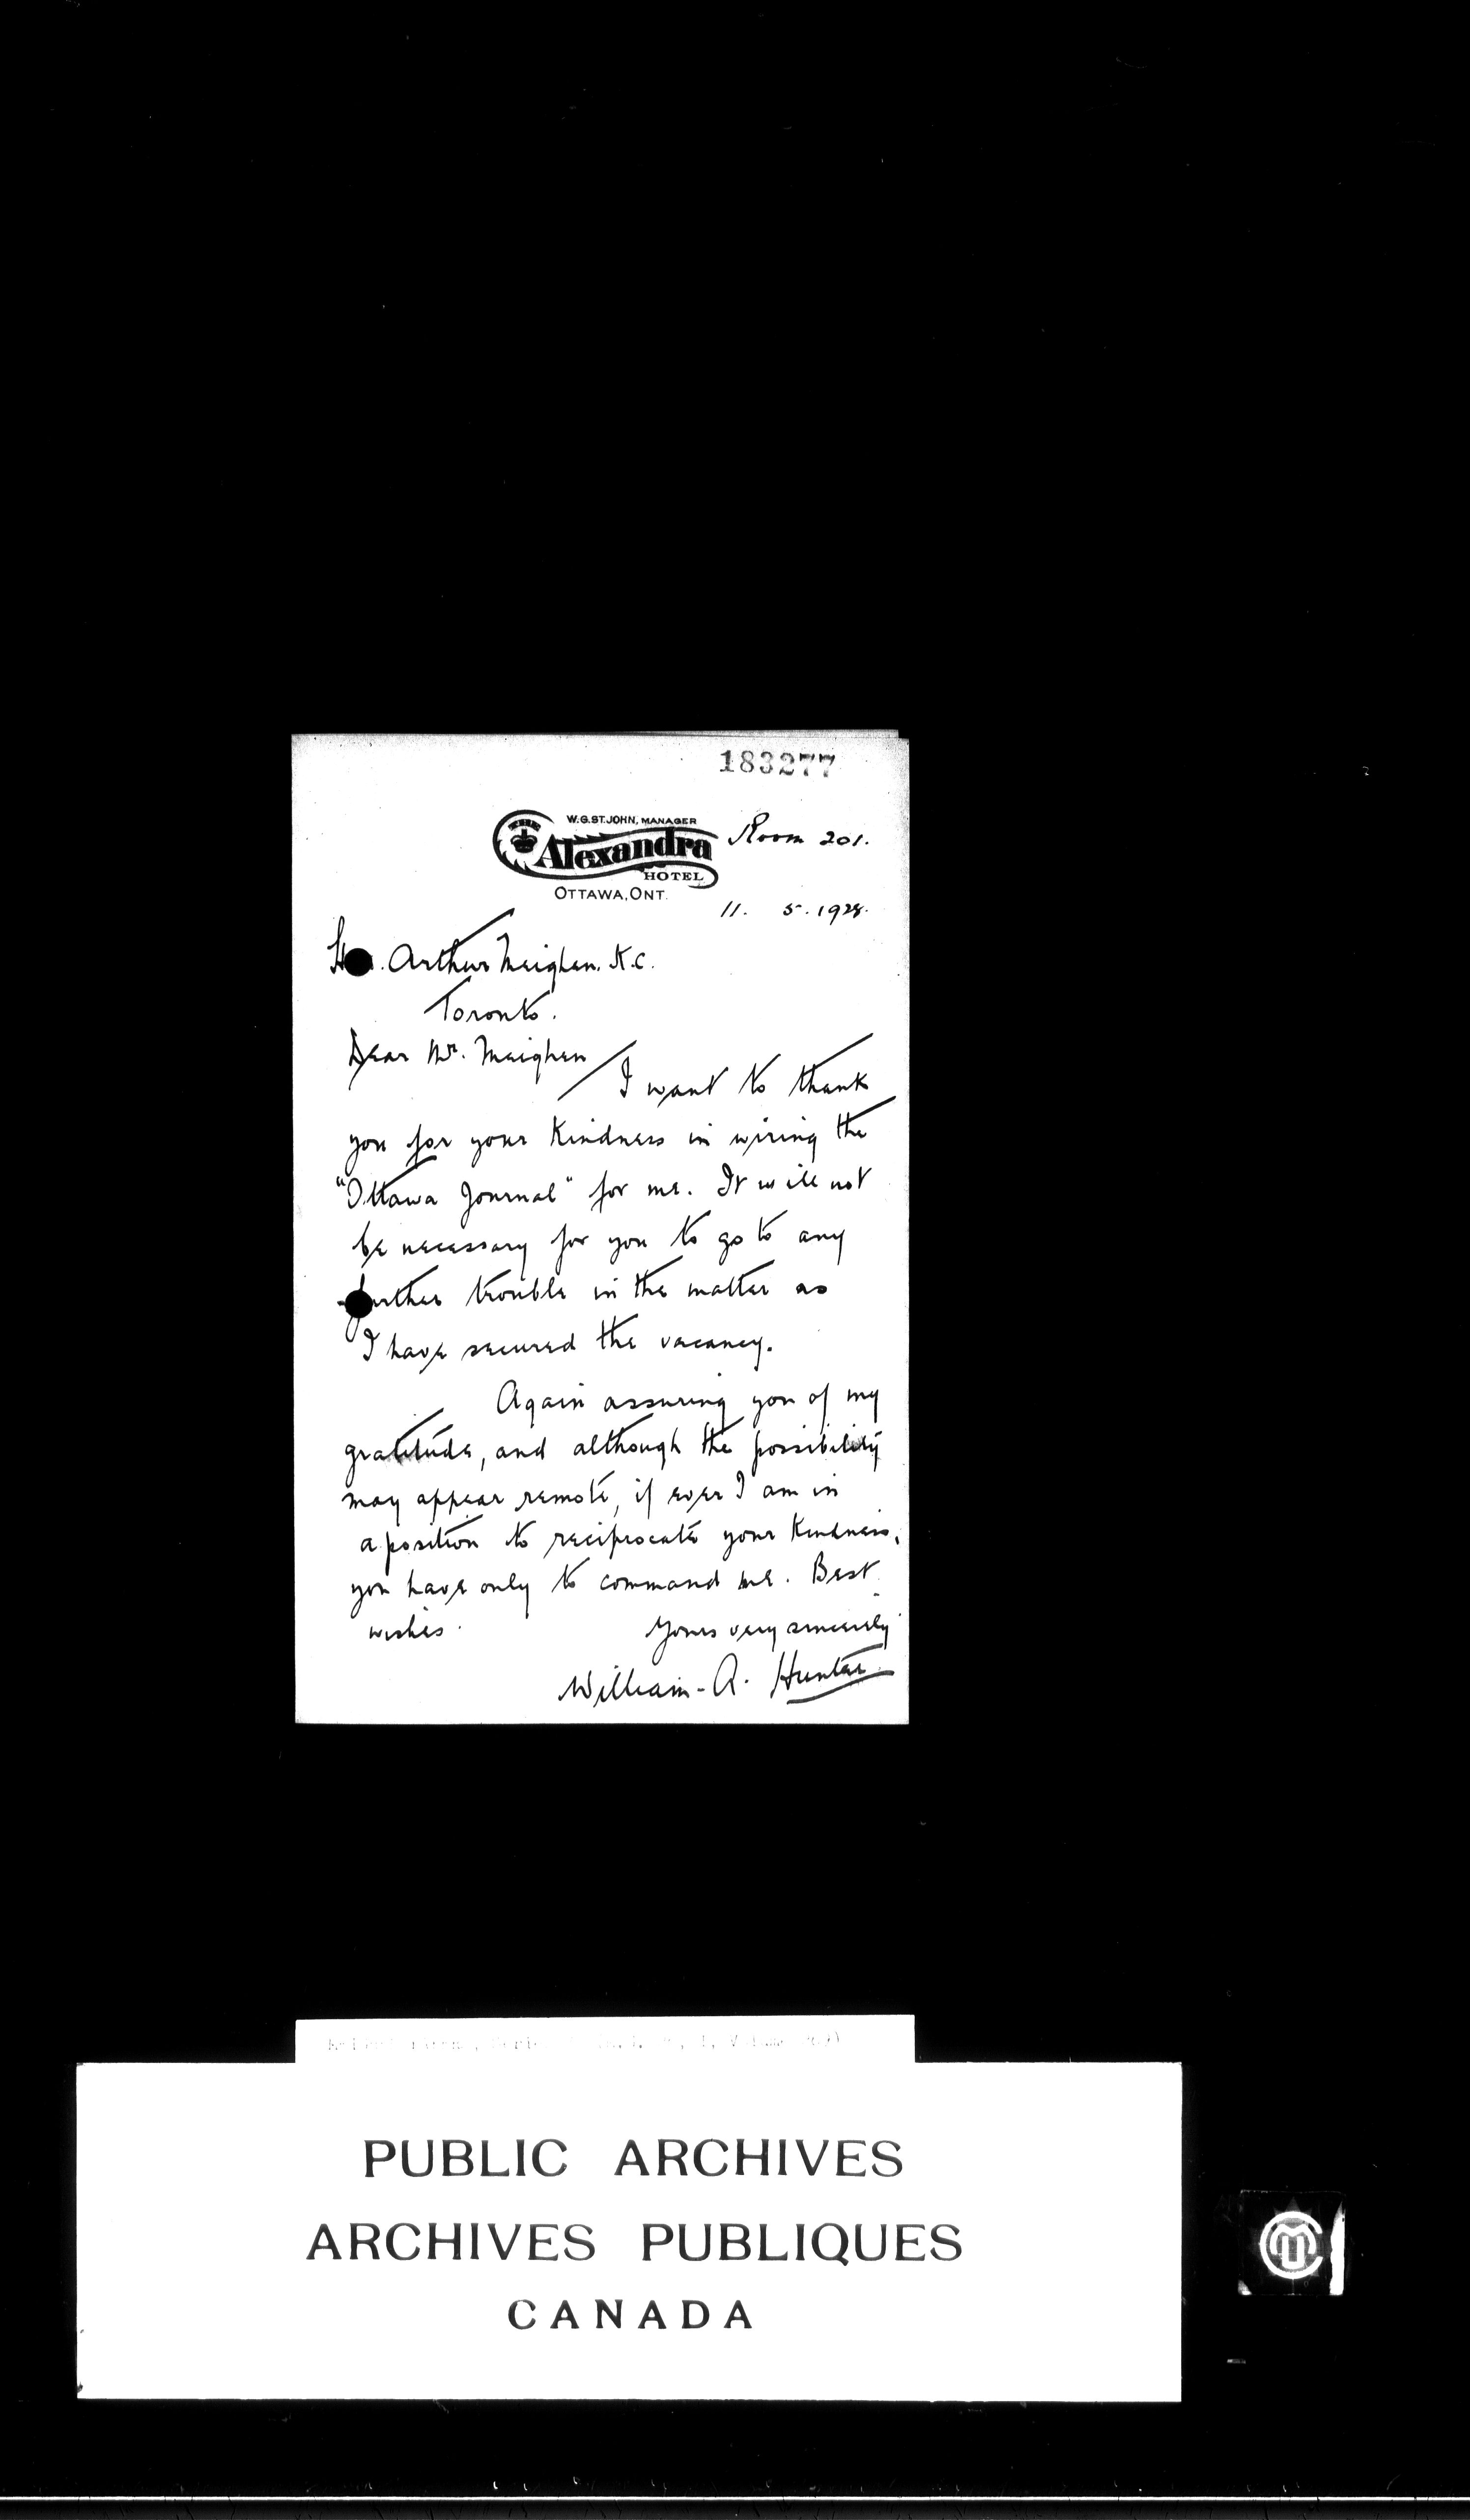 183277
W.G. ST. JOHN, MANAGER
THE Alexandra
HOTEL
OTTAWA, ONT.
Room 201.
11. 5. 1928.
Arthur Meighen. K.C.
Toronto.
Dear Mr. Meighen
I want to thank
you for your kindness in wiring the
"Ottawa Journal" for me. It will not
be necessary for you to go to any
further trouble in the matter as
I have secured the vacancy.
Again assuring you of my
gratitude, and although the possibility
may appear remote, if ever I am in
a position to reciprocate your kindness,
you have only to command me. Best
wishes.
Yours very sincerely
William-A. Hunter
PUBLIC ARCHIVES
ARCHIVES PUBLIQUES
CANADA